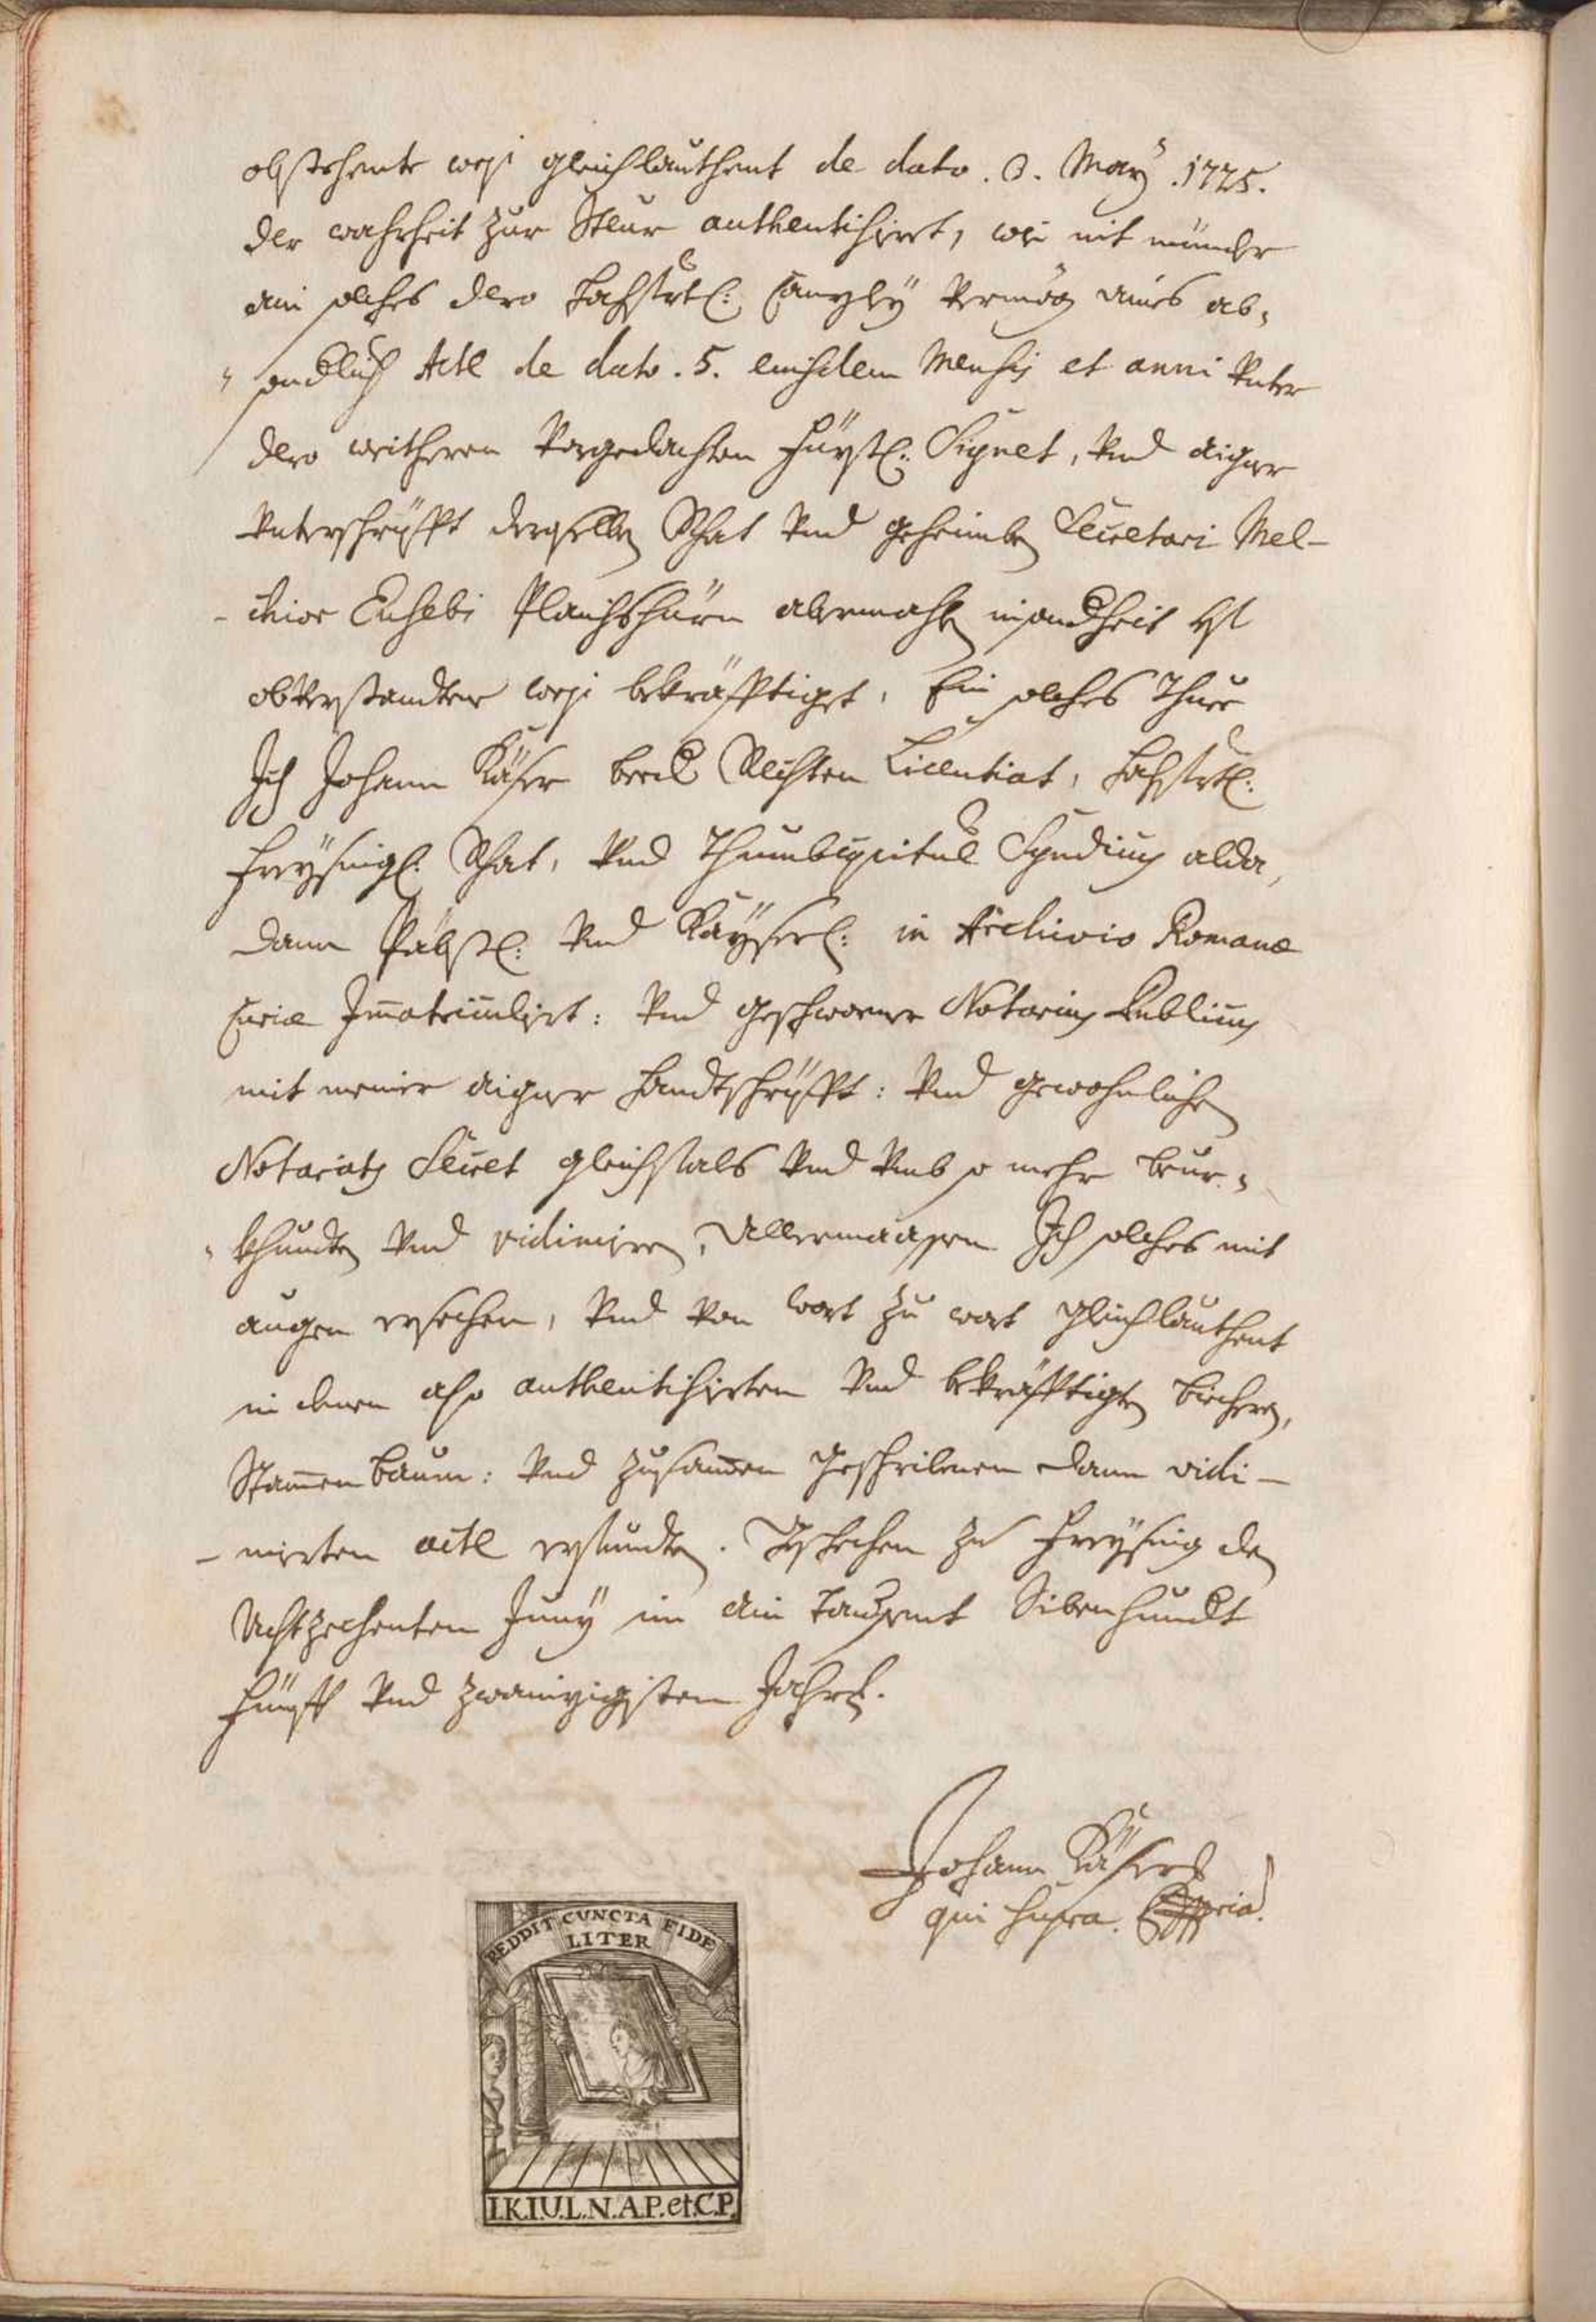 obstehente weis gleichlauthent de dato. 3. May .1725.
der wahrheit zur Steur authentisirt, wie nit münder
ain solches dero Hochfürstl: Canzley vermög aines ab=
=sonderlich Acte de dato . 5. eiusdem Mensis et anni unter
dero weitheren vorgedachten Fürstl: Signet, und aigner
unterschrifft derselben Rhat und geheimben Secretari Mel-
-chior Eusebi abermahlen
obverstandter weis bekräfftiget. Ein solches thue
Ich Johann Käser beed Rechten Licentiat, Hochfürstl:
Freysingl: Rhat, und Thumbcapitul Syndicus alda,
dann Päbstl: und Kayserl: in Archivio Romanæ
Curiæ Immatriculirt: und geschworner Notarius Publicus
mit meiner aigner Handtschrifft: und gewohnlichen
Notariats Secret gleichfals und umb so mehr beur=
=khundten und vidimiren, Allermaassen Ich solches mit
augen ersechen, und von wort zu wort gleichlauthent
in denen also authentisirten und bekräfftigten biechern,
Stammenbaum: und zusammen geschribenen dann vidi-
-mirten acte erfundten. Geschechen zu Freysing den
Achtzechenten Juny im ain Taußent Sibenhundert
Fünff und zwainzigisten Jahrs.
Johann Käser
qui supra.
REDDIT CUNCTA FIDE
LITER
I.K.I.U.L.N.A.P.et.C.P.